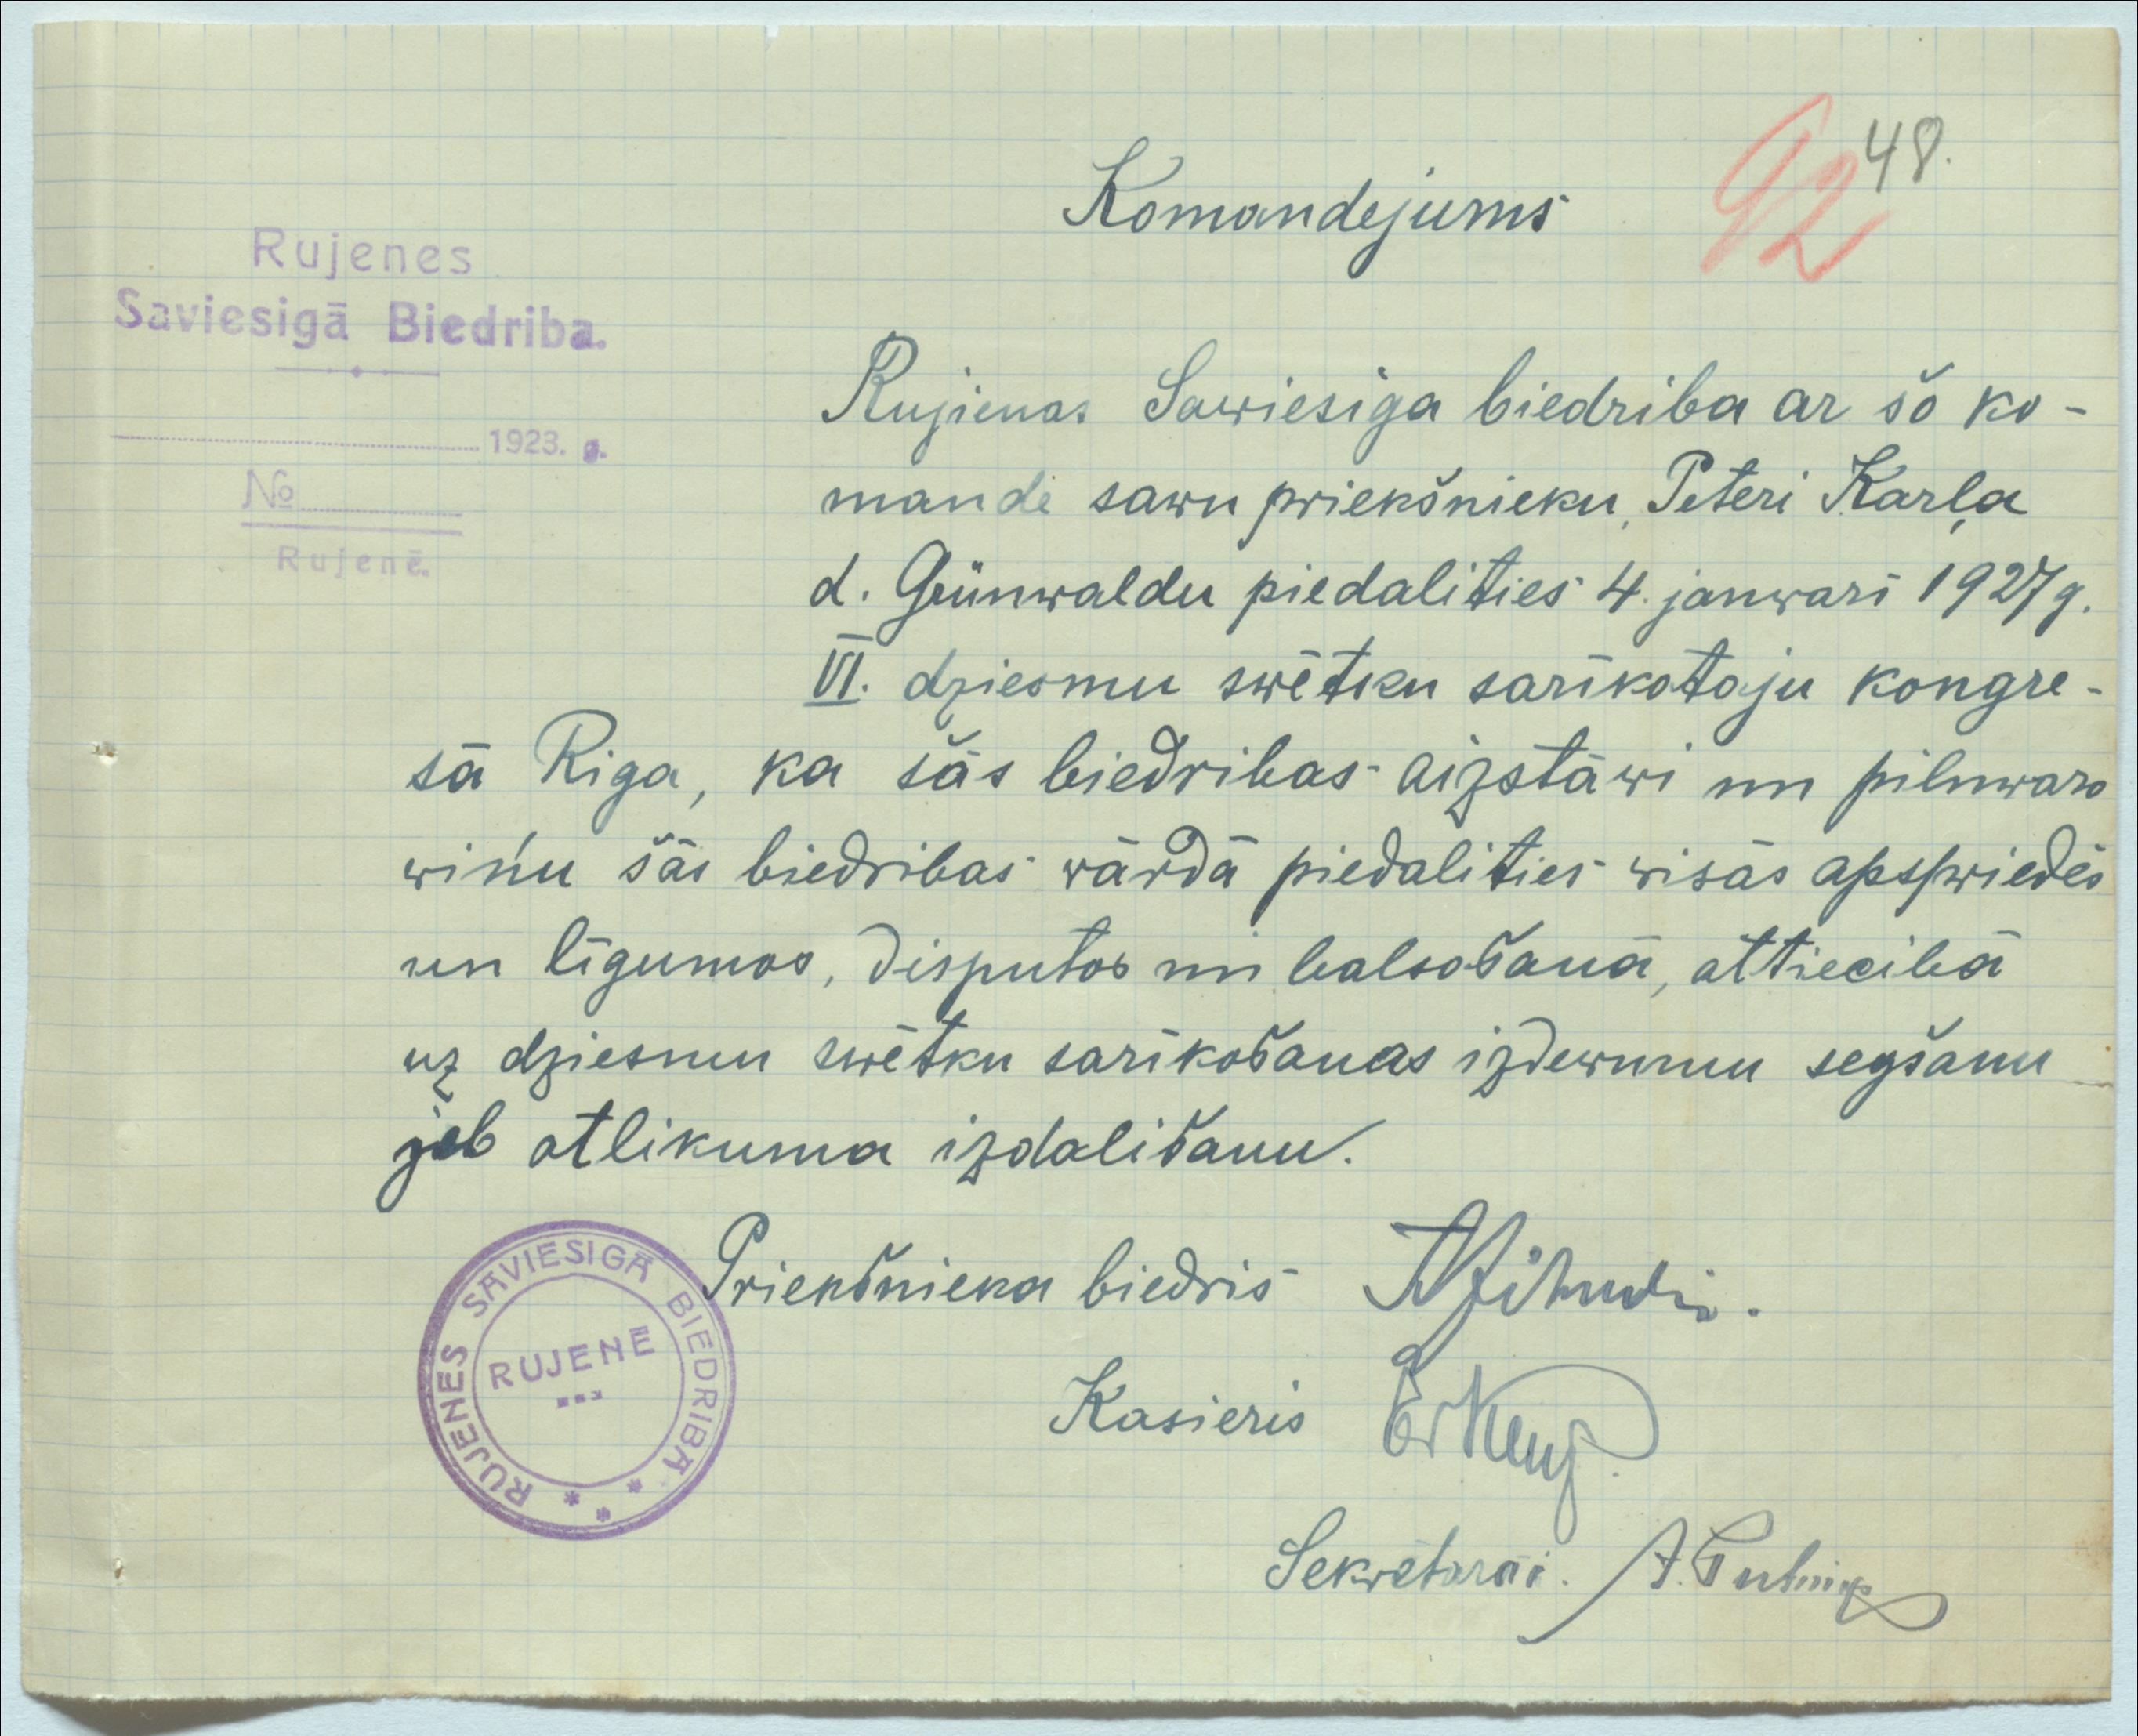 48.
92
Komandejums
Rujenes
Saviesigā Biedriba.
1923. g.
№
Rujenē.
Rujienas Sawiesiga biedriba ar šo ko-
mandē sawu priekšnieku, Peteri Karļa
d. Grünwaldu piedalities 4. janwarī 1927 g.
VI. dziesmu swētku sarīkotaju kongre-
sā Riga, ka šās biedribas aizstāwi un pilnwaro
wiņu šās biedribas vārdā piedalities wisās apspriedēs
un līgumos, disputos un balsošanā, attiecibā
uz dziesmu swētku sarīkošanas izdewumu segšanu
jeb atlikuma izdališanu.
Priekšnieka biedris
Kasieris
Sekretārs: A.
RUJENES SAVIESIGĀ BIEDRIBĀ
RUJENĒ